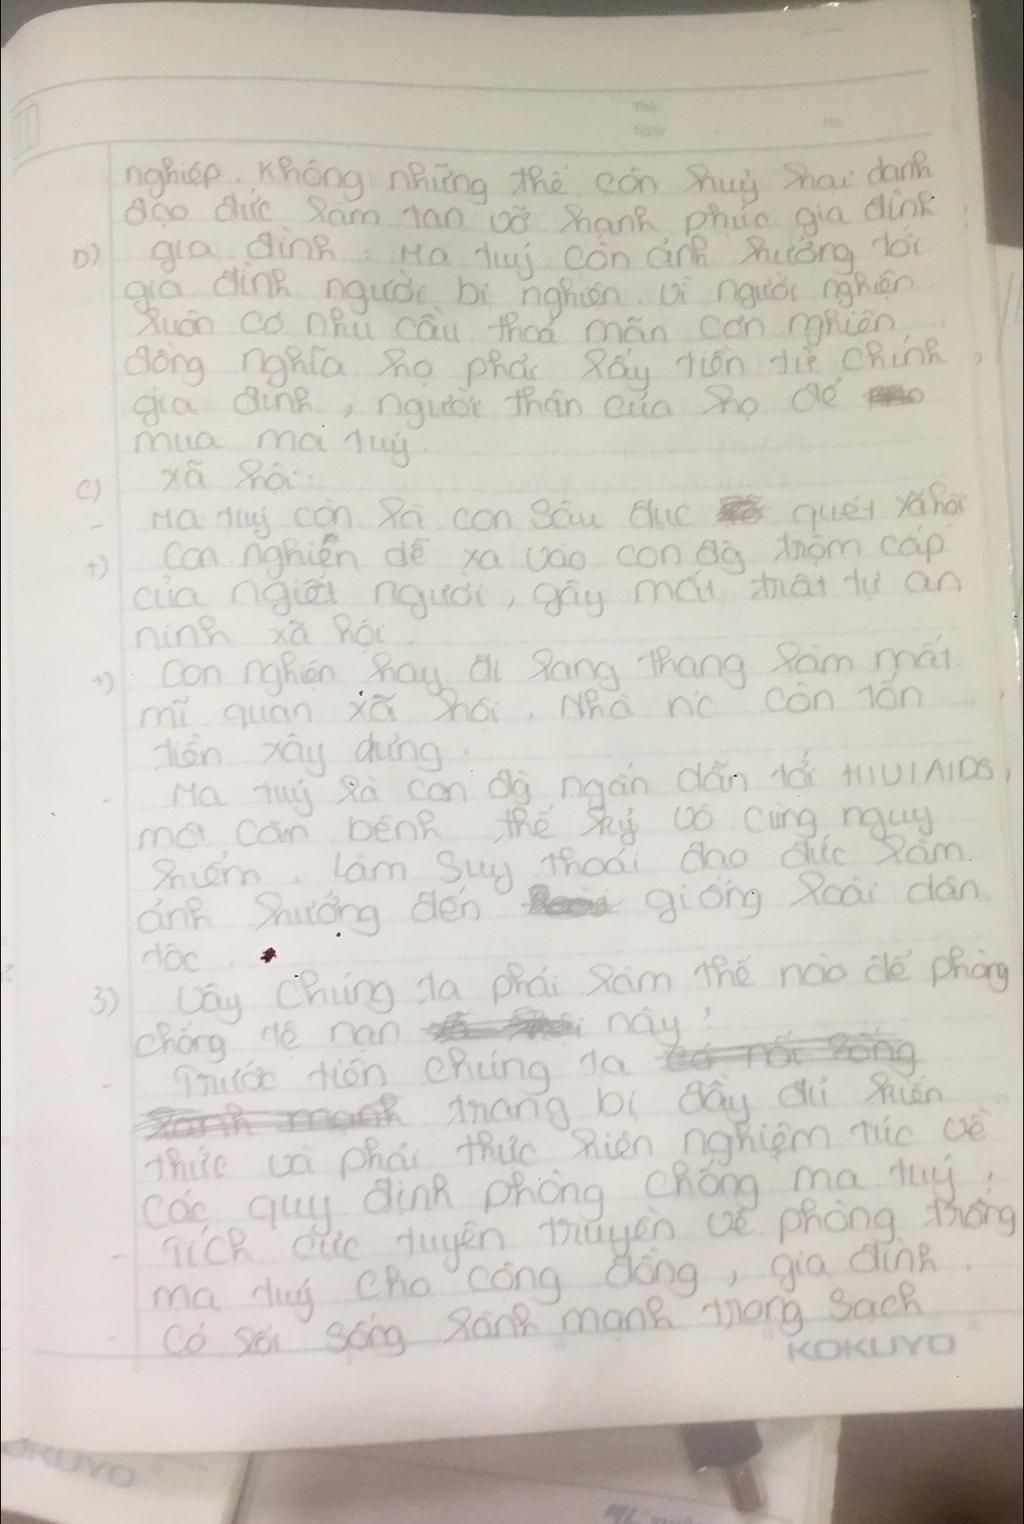 Thứ
Ngày
nghiệp. Không những thế còn huỷ hoại danh
đạo đức làm tan vỡ hạnh phúc gia đình
b) gia đình : Ma tuý còn ảnh hưởng tới
gia đình người bị nghiện. Vì người nghiện
luôn có nhu cầu thoả mãn cơn nghiện
đồng nghĩa họ phải lấy tiền từ chính
gia đình, người thân của họ để
mua ma tuý.
c) xã hội:
- Ma tuý còn là con sâu đục quét xã hội
+) Con nghiện dễ xa vào con đg trộm cắp
của ngiết người, gây mất trật tự an
ninh xã hội
+) Con nghiện hay đi lang thang làm mất
mĩ quan xã hội. Nhà nc còn tốn
tiền xây dựng.
- Ma tuý là con đg ngắn dẫn tới HIV/AIDS,
một căn bệnh thế kỷ vô cùng nguy
hiểm. Làm suy thoái đạo đức làm
ảnh hưởng đến giống loài dân
tộc.
3) Vậy chúng ta phải làm thế nào để phòng
chống tệ nạn này?
- Trước tiên chúng ta
trang bị đầy đủ kiến
thức và phải thực hiện nghiêm túc về
các quy định phòng chống ma tuý.
- Tích cực tuyên truyền về phòng trống
ma tuý cho cộng đồng, gia đình.
- Có lối sống lành mạnh trong sạch
KOKUYO
KUYO